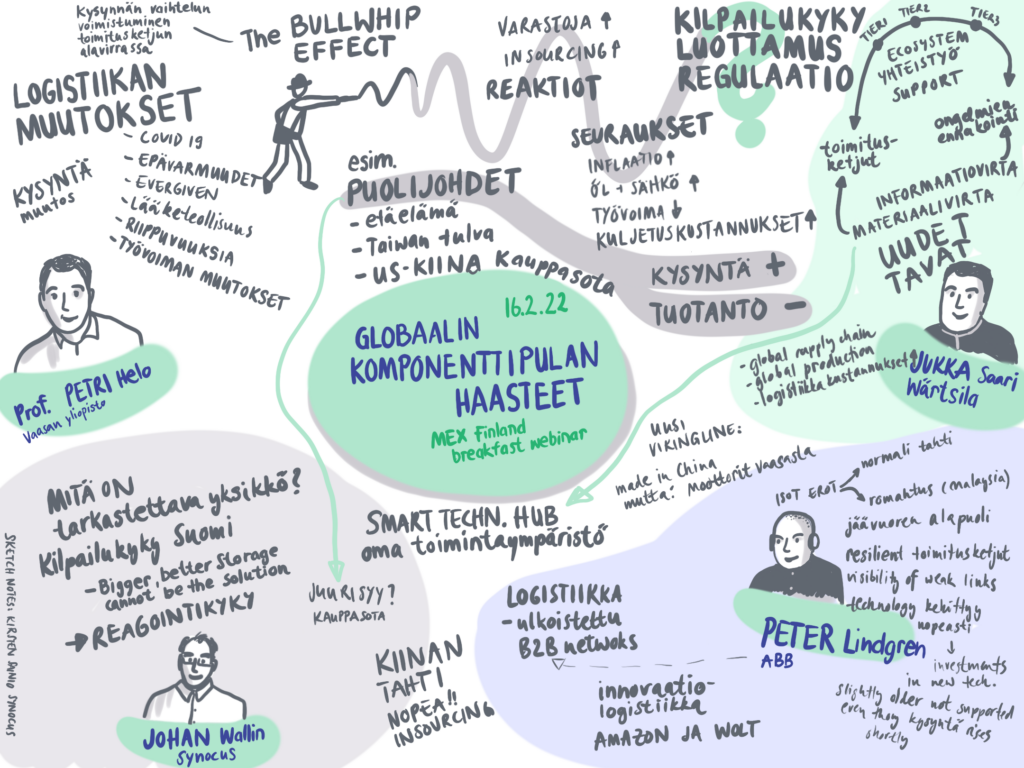 kysynnän vaihtelun
voimistuminen
toimitusketjun
alavirrassa
The BULLWHIP
EFFECT
VARASTOJA ↑
INSOURCING ↑
REAKTIOT
KILPAILUKYKY
LUOTTAMUS
REGULAATIO
?
TIER1
TIER2
TIER3
ECOSYSTEM
YHTEISTYÖ
SUPPORT
toimitus-
ketjut
ongelmien
ennakointi
INFORMAATIOVIRTA
MATERIAALIVIRTA
UUDET
TAVAT
LOGISTIIKAN
MUUTOKSET
- COVID 19
- EPÄVARMUUDET
- EVERGIVEN
- Lääketeollisuus
- RIIPPUVUUKSIA
- TYÖVOIMAN MUUTOKSET
KYSYNTÄ
muutos
esim.
PUOLIJOHDET
- etäelämä
- Taiwan tulva
- US-KIINA Kauppasota
SEURAUKSET
INFLAATIO ↑
ÖL + SÄHKÖ ↑
TYÖVOIMA ↓
KULJETUSKUSTANNUKSET ↑
KYSYNTÄ +
TUOTANTO -
Prof. PETRI Helo
Vaasan yliopisto
16.2.22
GLOBAALIN
KOMPONENTTIPULAN
HAASTEET
MEX Finland
breakfast webinar
- global supply chain
- global production
- logistiikka kustannukset ↑
JUKKA Saari
Wärtsila
UUSI
VIKINGLINE:
made in China
mutta: Moottorit vaasasta
SMART TECHN. HUB
oma toimintaympäristö
MITÄ ON
tarkastettava yksikkö?
Kilpailukyky Suomi
- Bigger, better storage
cannot be the solution
→ REAGOINTIKYKY
JUURISYY?
KAUPPASOTA
JOHAN Wallin
Synocus
SKETCH NOTES: KIRSTEN SYNOCUS
KIINAN
TAHTI
NOPEA!!
INSOURCING
LOGISTIIKKA
- ulkoistettu
B2B netwoks
innovaatio-
logistiikka
AMAZON JA WOLT
ISOT EROT
normali tahti
romahtus (malaysia)
jäävuoren alapuoli
resilient toimitusketjut
visibility of weak links
technology kehittyy
nopeasti
↓
investments
in new tech.
slightly older not supported
even thoug kysyntä rises
shortly
PETER Lindgren
ABB